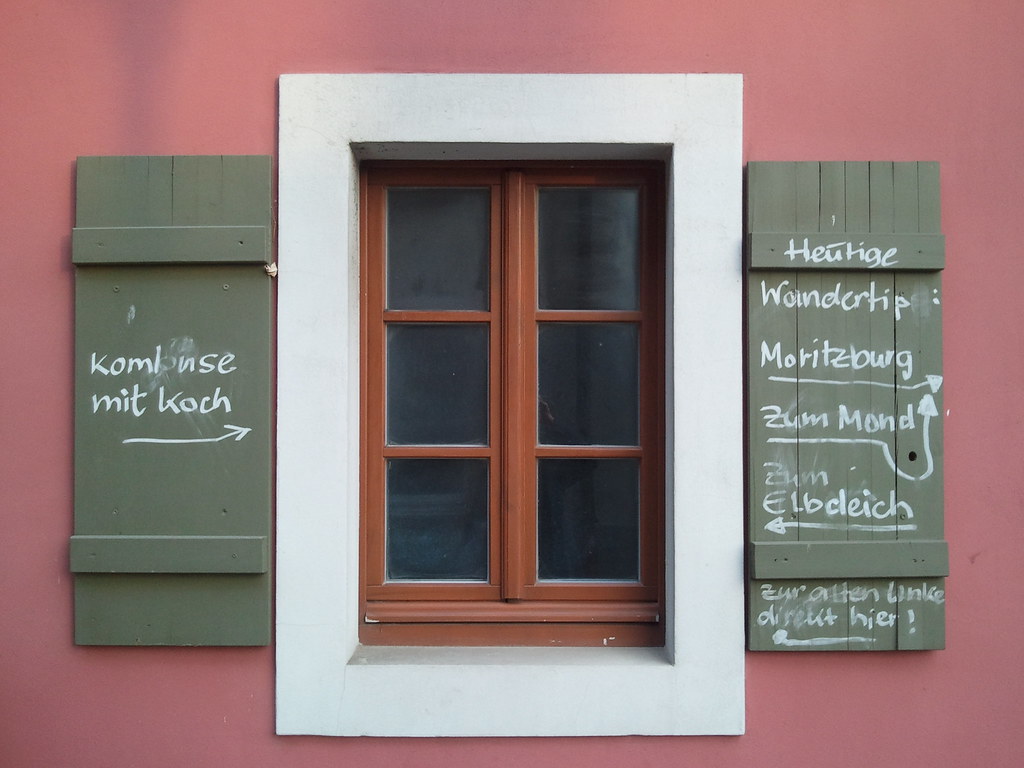 Kombüse
mit Koch
Heutige
Wandertip :
Moritzburg
Zum Mond
Zum
Elbdeich
Zur alten Linke
direkt hier!